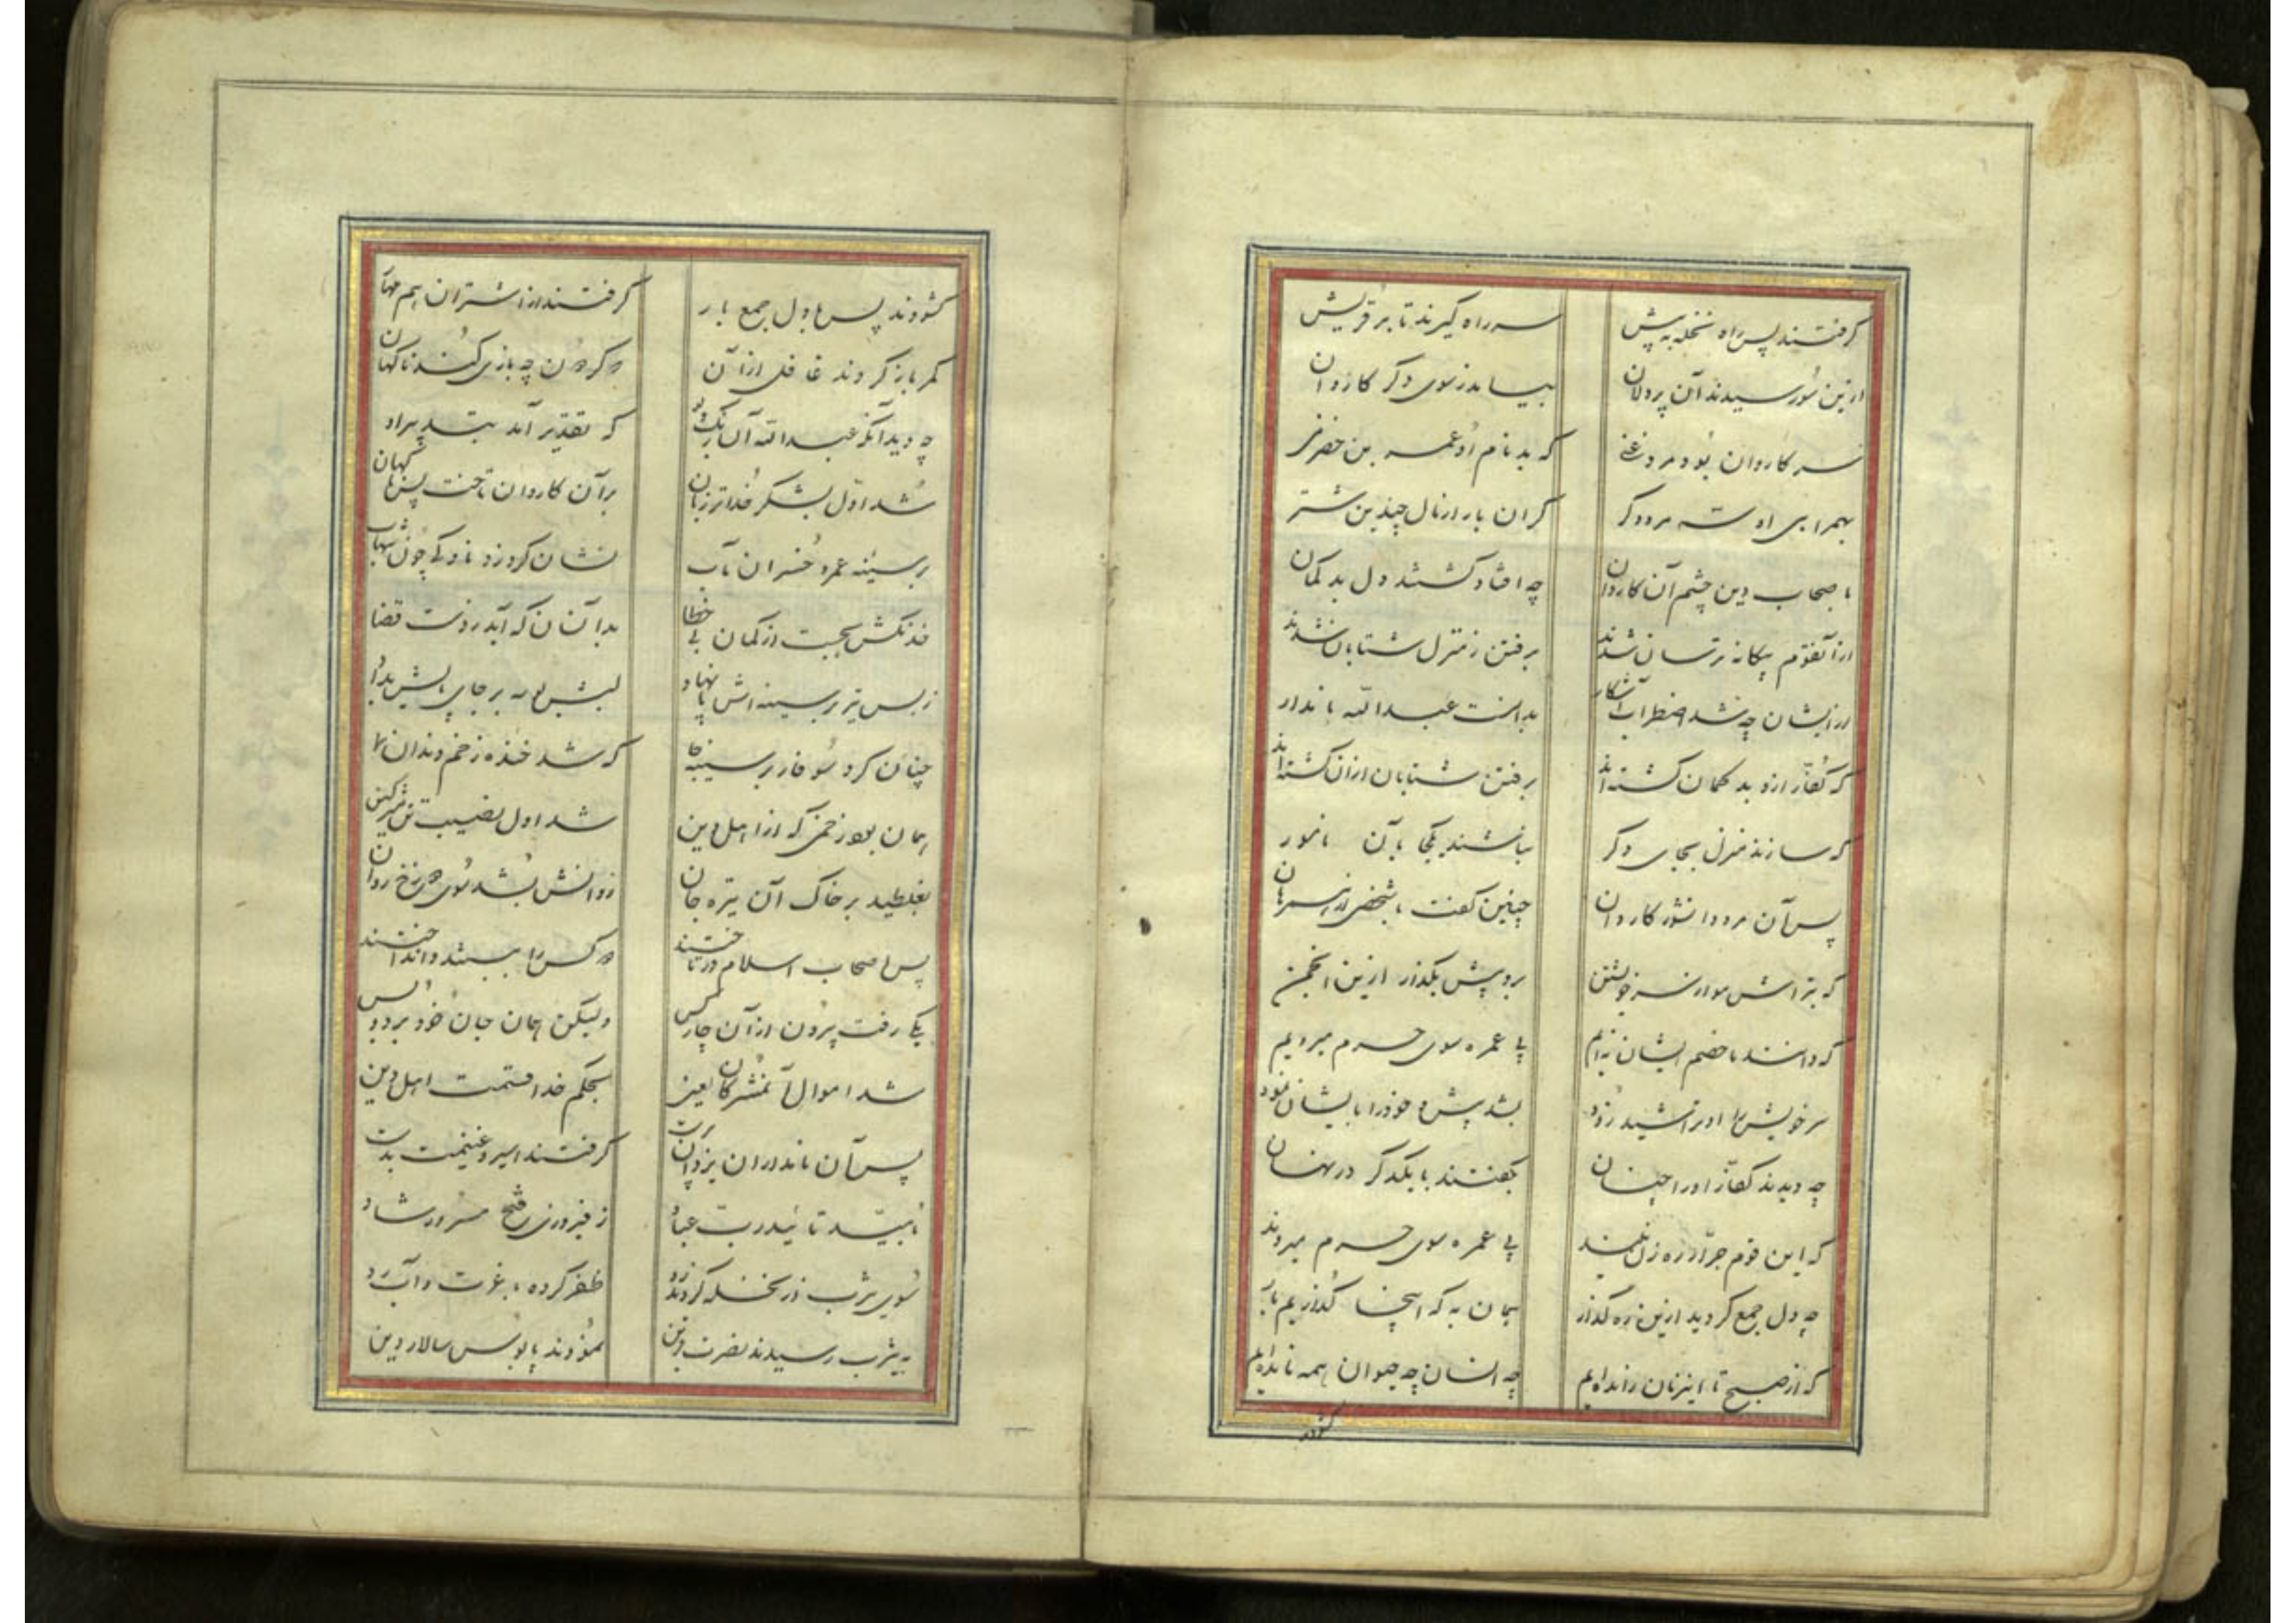 گرفتند پس راه نخله به پیش سر راه گیرند تا بر قریش
ازین سو رسیدند آن پردلان بیامد ز سوی دگر کاروان
سر کاروان بود مردی غنی که بد نام او عمرو بن حضرمی
بهمراهی او سه مرد دگر گران بار از مال چندین شتر
باصحاب دین چشم آن کاروان چه افتاد گشتند دل بد گمان
از آنقوم بیگانه ترسان شدند برفتن ز منزل شتابان شدند
ازیشان چه شد اضطراب آشکار بدانست عبدالله نامدار
که کفار ازو بد گمان گشته اند برفتن شتابان ازان گشته اند
که سازند منزل بجای دگر نباشند یکجا بآن نامور
پس آن مرد دانشور کاردان چنین گفت با شخصی از همرهان
که بتراش مو از سر خویشتن برو پیش بگذر ازین انجمن
که دانند ما خصم ایشان نه ایم پی عمره سوی حرم میرویم
سر خویش را او تراشید زود بشد پیش و خود را بایشان نمود
چه دیدند کفار او را چنان بگفتند با یکدگر در نهان
که این قوم جرار ره زن نیند پی عمره سوی حرم میروند
چه دل جمع کردید ازین ره گذار همان به که اینجا گذاریم بار
که از صبح تا این زمان رانده ایم چه انسان چه حیوان همه مانده ایم
گشودند
گشودند پس با دل جمع بار گرفتند از اشتران هم مهار
کمر باز کردند غافل از آن که گردون چه بازی کند ناگهان
چه دید آنکه عبدالله آن رنگ که تقدیر آمد بتدبیر او
شد اول بشکر خدا تر زبان بر آن کاروان تاخت پس ناگهان
بر سینه عمرو خسران مآب نشان کرد زد ناوکی چون شهاب
خدنگش بجست از کمان بی خطا بدانسان که آید ز دست قضا
ز بس تیر بر سینه اش پا نهاد
چنان کرد سوفار بر سینه جا که شد خنده زخم دندان نما
همان بود زخمی که از اهل دین شد اول نصیب تن مشرکین
بغلطید بر خاک آن تیره جان روانش بشد سوی دوزخ روان
پس اصحاب اسلام در تاختند دو کس را ببستند و انداختند
یکی رفت بیرون از آن چار کس ولیکن همان جان خود برد و بس
شد اموال آنمشرکان لعین بحکم خدا قسمت اهل دین
پس آن نامداران یزدان پرست گرفتند اسیر و غنیمت بدست
بتأیید رب عباد ز فیروزی و فتح مسرور و شاد
سوی یثرب از نخله کردند رو ظفر کرده با عزت و آب رو
به یثرب رسیدند نصرت قرین نمودند پابوس سالار دین